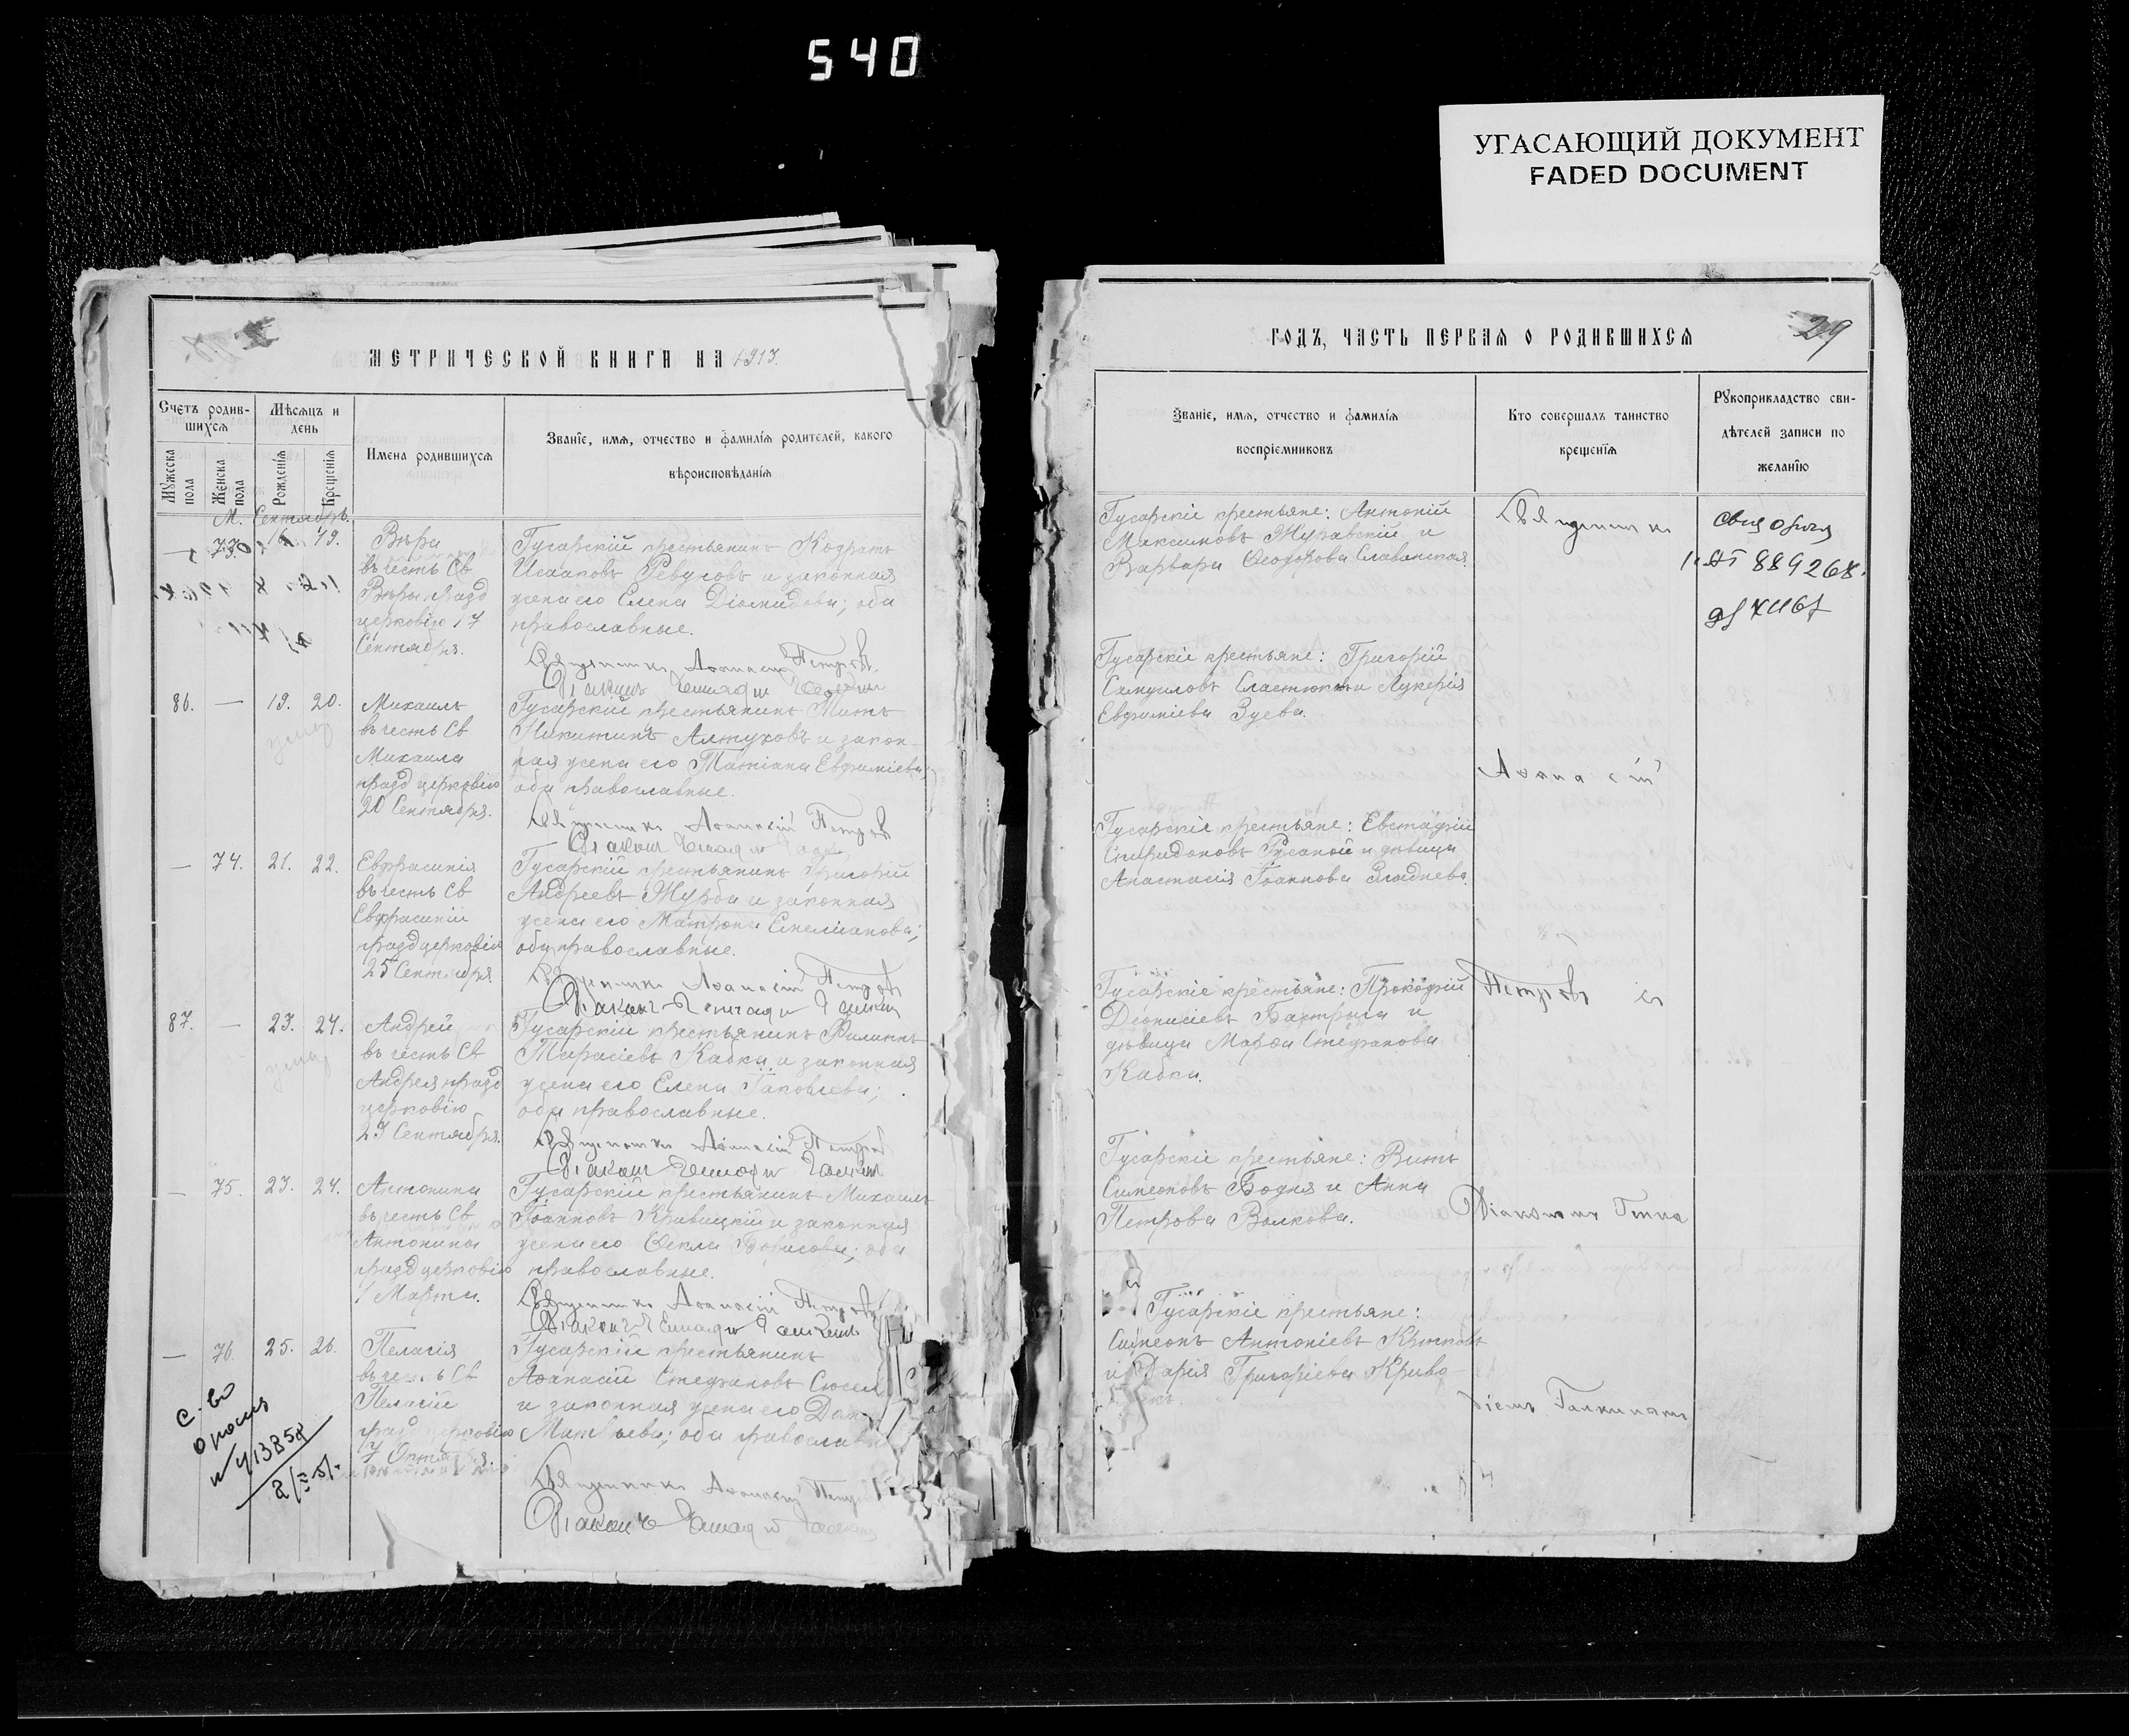 540
УГАСАЮЩИЙ ДОКУМЕНТ
FADED DOCUMENT
МЕТРИЧЕСКОЙ КНИГИ НА 1913.
Счетъ родив-
шихся
Мужеска пола
Женска пола
Мѣсяцъ и
день
Рожденія
Крещенія
Имена родившихся
Званіе, имя, отчество и фамилія родителей, какого
вѣроисповѣданія
М. Сентябрь.
— 73. 16. 19.
Вѣра
въ честь Св
Вѣры празд
церковію 17
Сентября.
Гусарскій крестьянинъ Кодратъ
Исааковъ Ревуковъ и законная
жена его Елена Діомидова; оба
православные.
Священникъ Аѳанасій Петровъ
Діаконъ Геннадій Галкинъ
86. — 19. 20.
Михаилъ
въ честь Св
Михаила
празд церковію
20 Сентября.
Гусарскій крестьянинъ Титъ
Никитинъ Алтуховъ и закон-
ная жена его Татіана Евфиміева;
оба православные.
Священникъ Аѳанасій Петровъ
Діаконъ Геннадій
умер
— 74. 21. 22.
Евфрасинія
въ честь Св
Евфрасиніи
празд церковію
25 Сентября
Гусарскій крестьянинъ Григорій
Андреевъ Журба и законная
жена его Матрона Емеліанова;
оба православные.
Священникъ Аѳанасій Петровъ
Діаконъ Геннадій Галкинъ
87. — 23. 24.
Андрей
въ честь Св
Андрея празд
церковію
23 Сентября.
Гусарскій крестьянинъ Филиппъ
Тарасіевъ Кабка и законная
жена его Елена Іаковлева;
оба православные.
Священникъ Аѳанасій Петровъ
Діаконъ Геннадій Галкинъ
умер
— 75. 23. 24.
Антонина
въ честь Св
Антонины
празд церковію
1 Марта.
Гусарскій крестьянинъ Михаилъ
Іоанновъ Кривицкій и законная
жена его Ѳекла Борисова; оба
православные.
Священникъ Аѳанасій Петровъ
Діаконъ Геннадій Галкинъ
— 76. 25. 26.
Пелагія
въ честь Св
Пелагіи
празд церковію
7 Октября.
Гусарскій крестьянинъ
Аѳанасій Стефановъ
и законная жена его
оба православные
Священникъ Аѳанасій
Діаконъ Геннадій Галкинъ
с-во
ГОДЪ, ЧАСТЬ ПЕРВАЯ О РОДИВШИХСЯ
29
Званіе, имя, отчество и фамилія
воспріемниковъ
Кто совершалъ таинство
крещенія
Рукоприкладство сви-
дѣтелей записи по
желанію
Гусарскіе крестьяне: Антоній
Максимовъ Журавскій и
Варвара Ѳеодорова Славянская.
Гусарскіе крестьяне: Григорій
Самуиловъ и Лукерія
Евфиміева Зуева.
Гусарскіе крестьяне: Евстафій
Спиридоновъ и дѣвица
Анастасія Іоаннова
Гусарскіе крестьяне: Прокофій
Діонисіевъ Бастрыга и
дѣвица Марѳа Стефанова
Кабка.
Гусарскіе крестьяне: Витъ
Симеоновъ Бодня и Анна
Петрова Волкова.
Гусарскіе крестьяне:
Симеонъ Антоніевъ
и Дарія Григоріева Криво-
Священникъ
Аѳанасій
Петровъ съ
Діакономъ Генна
діемъ Галкинымъ
889268.